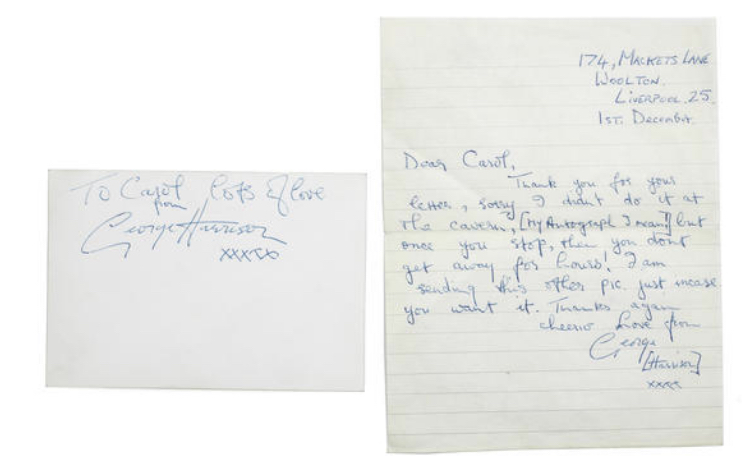 To Carol lots of love
from
George Harrison
xxxxx
174, MACKETS LANE
WOOLTON.
LIVERPOOL. 25.
1ST. DECEMBER.
Dear Carol,
Thank you for your
letter, sorry I didn't do it at
the cavern, [my Autograph I mean] but
once you stop, then you dont
get away for hours! I am
sending this other pic. just incase
you want it. Thanks again
cheerio Love from
George
[Harrison]
xxxx